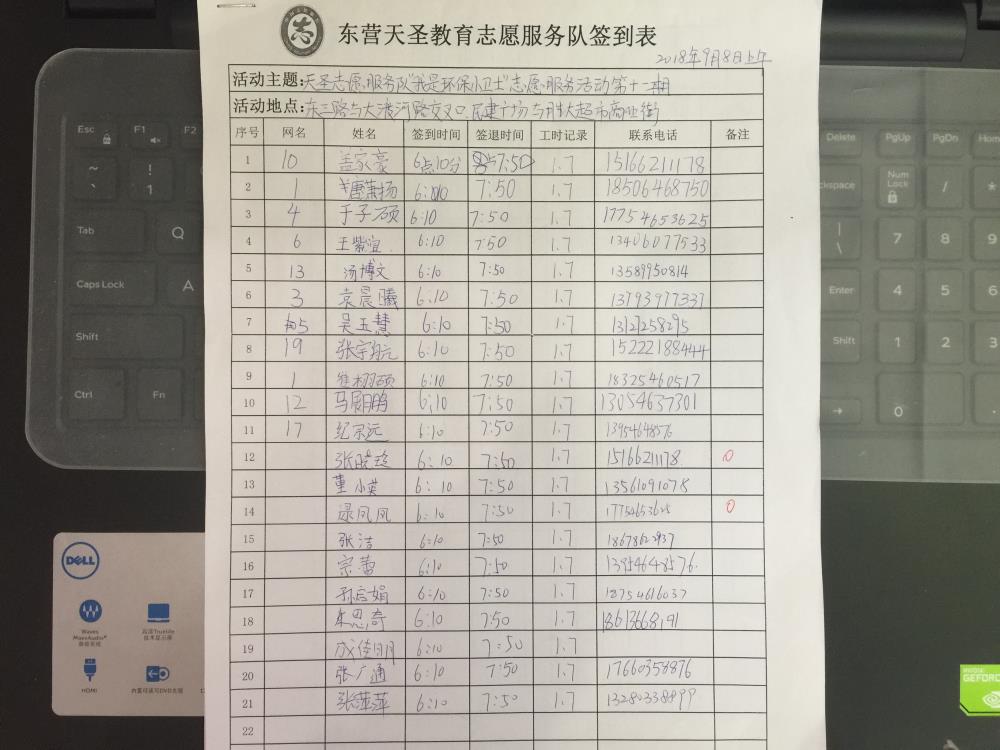 东营天圣教育志愿服务队签到表
2018年9月8日上午
活动主题:天圣志愿服务队"我是环保小卫士"志愿服务活动第十二期
活动地点:东三路与大渡河路交叉口.民建广场与胜大超市商业街
序号 网名 姓名 签到时间 签退时间 工时记录 联系电话 备注
1 10 盖家豪 6点10分 7:50 1.7 15166211178
2 1 唐萧扬 6:10 7:50 1.7 18506468750
3 4 于子硕 6:10 7:50 1.7 17754653625
4 6 王紫宜 6:10 7:50 1.7 13406077533
5 13 汤博文 6:10 7:50 1.7 13589950814
6 3 袁晨曦 6:10 7:50 1.7 13793977337
7 5 吴玉慧 6:10 7:50 1.7 13127258295
8 19 张宇翔元 6:10 7:50 1.7 15222188444
9 1 崔栩硕 6:10 7:50 1.7 18325460517
10 12 马展鹏 6:10 7:50 1.7 13054637301
11 17 纪宗远 6:10 7:50 1.7 13954648576
12 张晓玲 6:10 7:50 1.7 15166211178 0
13 董小英 6:10 7:50 1.7 13561091078
14 禄凤凤 6:10 7:50 1.7 17754653625 0
15 张洁 6:10 7:50 1.7 18678622937
16 宗蕾 6:10 7:50 1.7 13954648576
17 孙启娟 6:10 7:50 1.7 18754616037
18 朱思奇 6:10 7:50 1.7 18613668191
19 成佳明 6:10 7:50 1.7
20 张广通 6:10 7:50 1.7 17660353876
21 张萍萍 6:10 7:50 1.7 13280338899
22
Esc F1 F2
~ ` ! 1
Tab Q
Caps Lock A
Shift
Ctrl Fn
Delete PgUp PgDn Home
ckspace Num Lock / *
| \ 7 8 9
Enter 4 5 6
Shift 1 2 3
0
DELL
Waves MaxxAudio®
HDMI
内置可读写DVD光驱
GEFORC